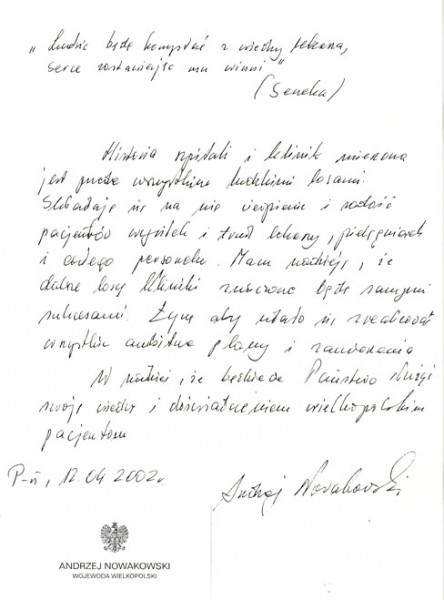 „Ludzie będą korzystać z wiedzy lekarza,
serce zostawiając mu winni"
(Seneka)
Historia szpitali i klinik mierzona
jest przede wszystkim ludzkimi losami.
Składają się na nie cierpienie i radość
pacjentów wysiłek i trud lekarzy, pielęgniarek
i całego personelu. Mam nadzieję, że
dalsze losy Kliniki znaczone będą samymi
sukcesami. Życzę aby udało się zrealizować
wszystkie ambitne plany i zamierzenia
W nadziei, że będziecie Państwo służyć
swoją wiedzą i doświadczeniem wielkopolskim
pacjentom
P-ń, 12.04 2002r
Andrzej Nowakowski
ANDRZEJ NOWAKOWSKI
WOJEWODA WIELKOPOLSKI